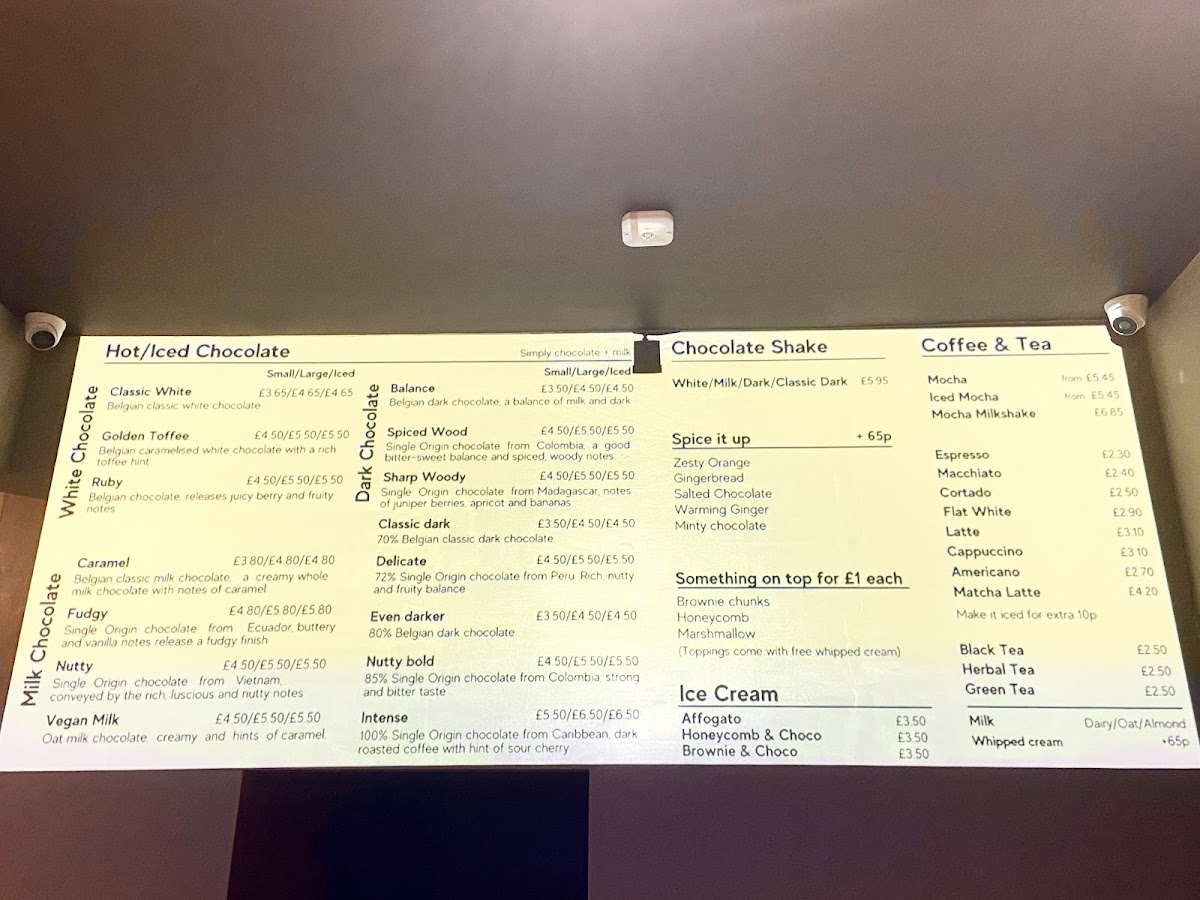 Hot/Iced Chocolate
Simply chocolate + milk
Small/Large/Iced
White Chocolate
Classic White £3.65/£4.65/£4.65
Belgian classic white chocolate
Golden Toffee £4.50/£5.50/£5.50
Belgian caramelised white chocolate with a rich
toffee hint
Ruby £4.50/£5.50/£5.50
Belgian chocolate, releases juicy berry and fruity
notes
Milk Chocolate
Caramel £3.80/£4.80/£4.80
Belgian classic milk chocolate, a creamy whole
milk chocolate with notes of caramel
Fudgy £4.80/£5.80/£5.80
Single Origin chocolate from Ecuador, buttery
and vanilla notes release a fudgy finish
Nutty £4.50/£5.50/£5.50
Single Origin chocolate from Vietnam,
conveyed by the rich, luscious and nutty notes
Vegan Milk £4.50/£5.50/£5.50
Oat milk chocolate, creamy and hints of caramel
Small/Large/Iced
Dark Chocolate
Balance £3.50/£4.50/£4.50
Belgian dark chocolate, a balance of milk and dark
Spiced Wood £4.50/£5.50/£5.50
Single Origin chocolate from Colombia, a good
bitter-sweet balance and spiced, woody notes
Sharp Woody £4.50/£5.50/£5.50
Single Origin chocolate from Madagascar, notes
of juniper berries, apricot and bananas
Classic dark £3.50/£4.50/£4.50
70% Belgian classic dark chocolate
Delicate £4.50/£5.50/£5.50
72% Single Origin chocolate from Peru. Rich, nutty
and fruity balance
Even darker £3.50/£4.50/£4.50
80% Belgian dark chocolate
Nutty bold £4.50/£5.50/£5.50
85% Single Origin chocolate from Colombia, strong
and bitter taste
Intense £5.50/£6.50/£6.50
100% Single Origin chocolate from Caribbean, dark
roasted coffee with hint of sour cherry
Chocolate Shake
White/Milk/Dark/Classic Dark £5.95
Spice it up + 65p
Zesty Orange
Gingerbread
Salted Chocolate
Warming Ginger
Minty chocolate
Something on top for £1 each
Brownie chunks
Honeycomb
Marshmallow
(Toppings come with free whipped cream)
Ice Cream
Affogato £3.50
Honeycomb & Choco £3.50
Brownie & Choco £3.50
Coffee & Tea
Mocha from £5.45
Iced Mocha from £5.45
Mocha Milkshake £6.85
Espresso £2.30
Macchiato £2.40
Cortado £2.50
Flat White £2.90
Latte £3.10
Cappuccino £3.10
Americano £2.70
Matcha Latte £4.20
Make it iced for extra 10p
Black Tea £2.50
Herbal Tea £2.50
Green Tea £2.50
Milk Dairy/Oat/Almond
Whipped cream +65p